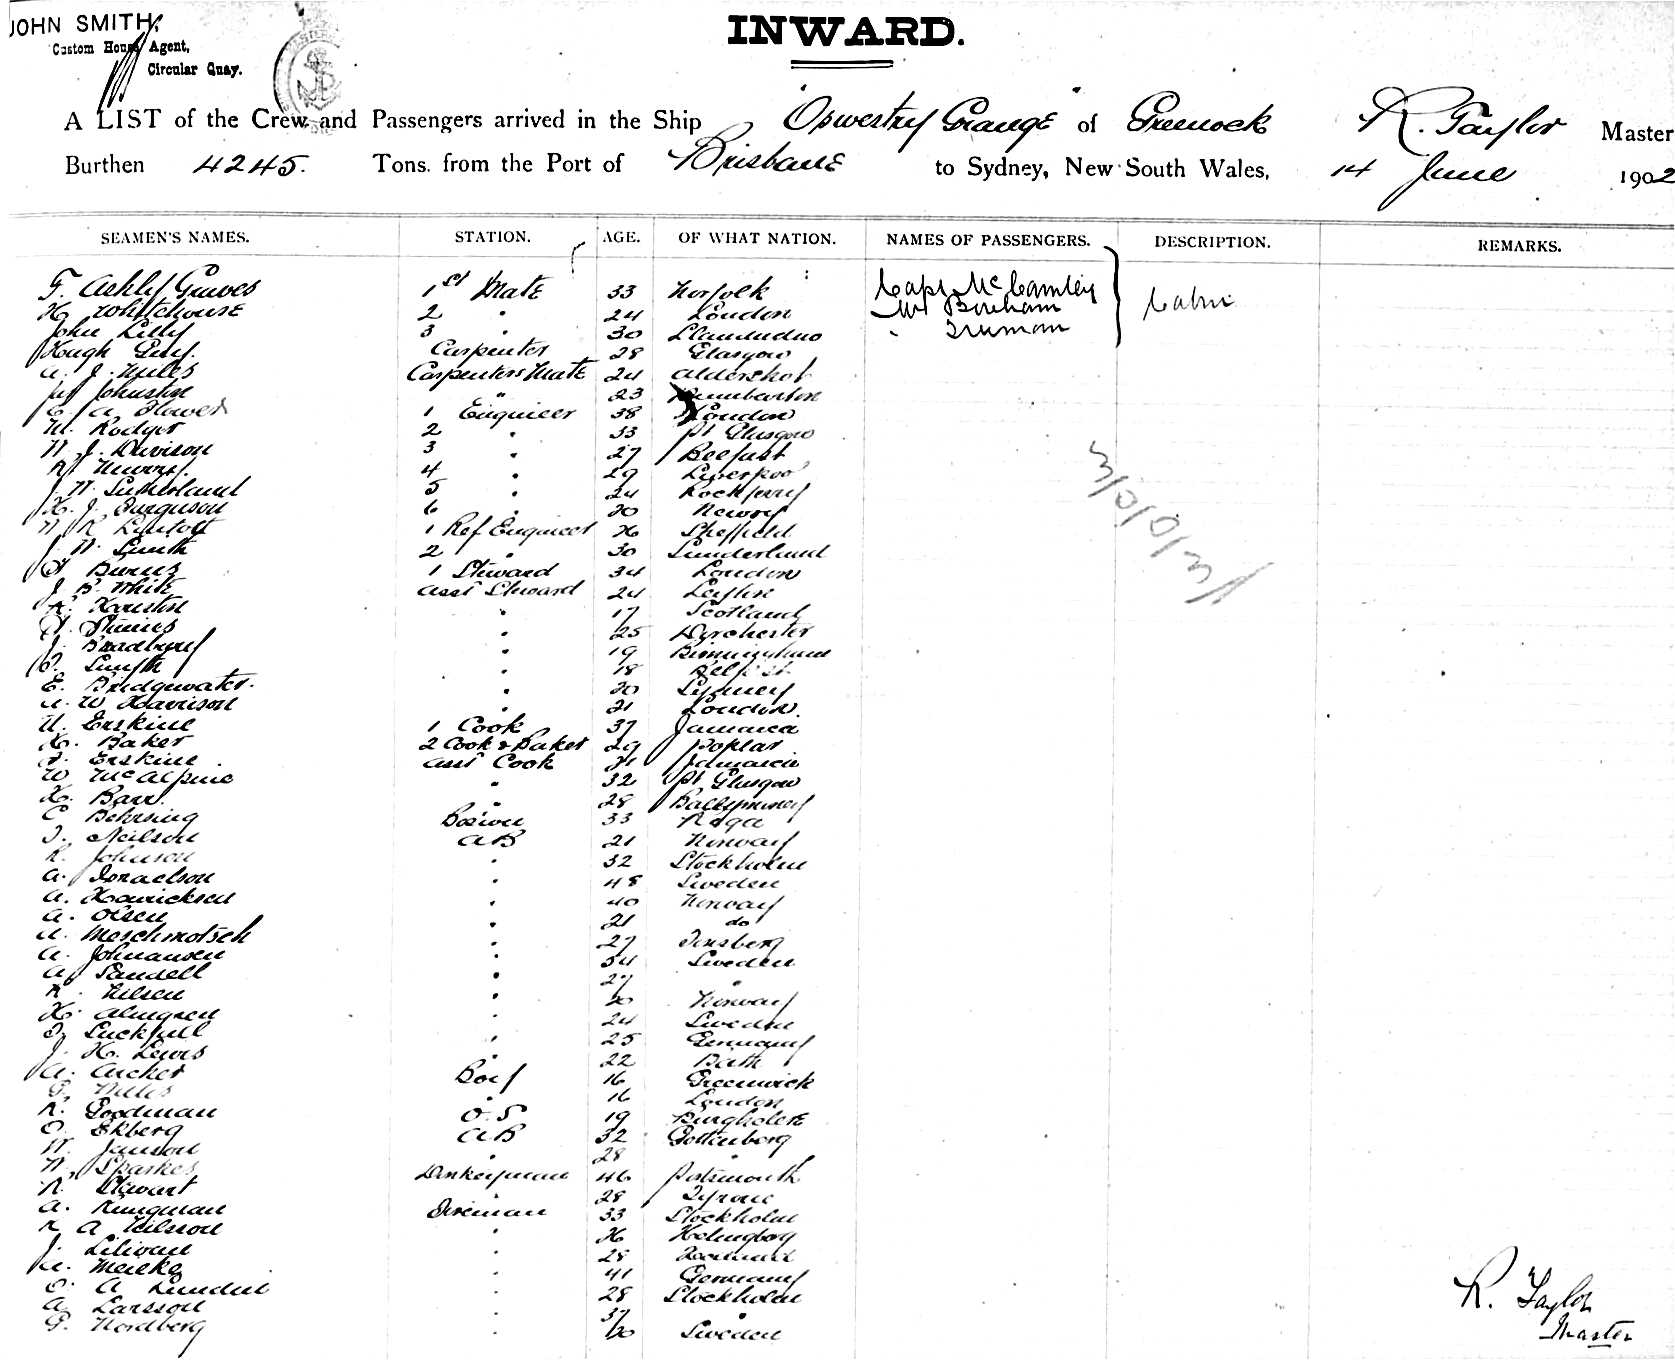 JOHN SMITH,
Custom House Agent,
Circular Quay.
INWARD.
A LIST of the Crew and Passengers arrived in the Ship "Oswestry Grange" of Greenock R. Taylor Master
Burthen 4245. Tons. from the Port of Brisbane to Sydney, New South Wales, 14 June 1902
SEAMEN'S NAMES. STATION. AGE. OF WHAT NATION. NAMES OF PASSENGERS. DESCRIPTION. REMARKS.
F. Ashley Graves 1st Mate 33 Norfolk Capt McCamley
H. Whitehouse 2 " 24 London Mr Bonham Cabin
John Lilly 3 " 30 Llandudno " Truman
Hugh Guy. Carpenter 28 Glasgow
A. J. Miles Carpenters Mate 24 Aldershot
Johnston " 23 Dumbarton
C. A. Flower 1 Engineer 38 London
M. Rodger 2 " 33 Pt Glasgow
W. J. Davison 3 " 27 Belfast
4 " 29 Liverpool
J. W. Sutherland 5 " 24 Rockferry
H. J. Ferguson 6 " 30 Newry
W R Lintott 1 Ref Engineer 26 Sheffield
J. W. Smith 2 " 30 Sunderland
Burns 1 Steward 34 London
J. B. White Asst Steward 24 Leyton
" 17 Scotland
" 25 Dorchester
J. Bradbury " 19 Birmingham
Smyth " 18 Belfast
E. Bridgewater. " 20 Lydney
A. W Harrison " 21 London.
U. Erskine 1 Cook 37 Jamaica
H. Baker 2 Cook & Baker 29 Poplar
Erskine Asst Cook 21 Jamaica
W McAlpine " 32 Pt Glasgow
H. Barr. " 28 Ballymoney
C Behrsing Bosiwn 33 Riga
T. Neilson AB 21 Norway
R. Johnson " 32 Stockholm
A. Israelson " 48 Sweden
A. Hawicksen " 40 Norway
A. Olsen " 21 do
A. Meschmotsch " 27 Tonsberg
A. Johnansen " 34 Sweden
A. Sandell " 27 "
R. Nilsen " 20 Norway
H. Almgren " 24 Sweden
T. Luckfull " 25 Germany
J. H. Lewis " 22 Bath
A. Archer Boy 16 Greenwick
G. Miles " 16 London
R. Goodman O.S 19 Burgholere
O. Ekberg AB 32 Gottenberg
W. Janson " 28 "
W. Sparkes Donkeyman 46 Portsmouth
R. Stewart " 28 Tyrone
A. Ringman Fireman 33 Stockholm
R A Nilsson " 26 Helsingborg
J. Lilivan " 28
A. Meieke " 41 Germany
O. A Lundin " 28 Stockholm
A Larsson " 37 "
G. Nordberg " 30 Sweden
R. Taylor
Master